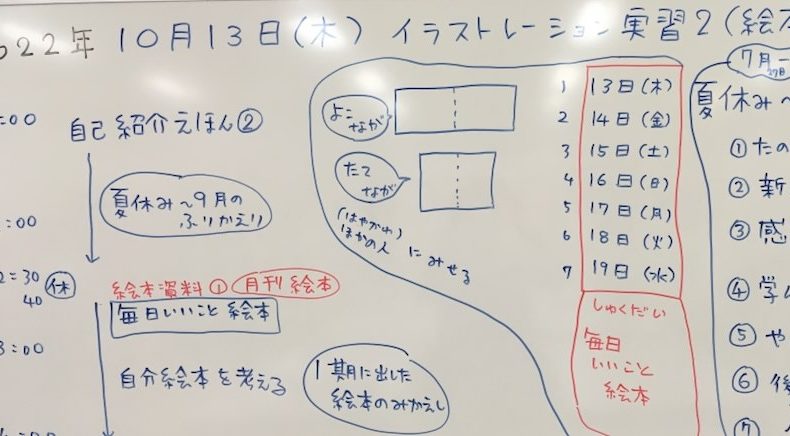 022年 10月13日(木) イラストレーション実習2(絵本
:00
自己紹介えほん②
夏休み〜9月の
ふりかえり
:00
2:30
40
休
絵本資料① 月刊絵本
毎日いいこと絵本
3:00
自分絵本を考える
1期に出した
絵本のみかえし
よこ
なが
たて
なが
(はやがわ)
ほかの人 にみせる
1 13日(木)
2 14日(金)
3 15日(土)
4 16日(日)
5 17日(月)
6 18日(火)
7 19日(水)
しゅくだい
毎日
いいこと
絵本
7月
27日
夏休み〜
①たの
②新
③感
④学
⑤や
⑥後
⑦